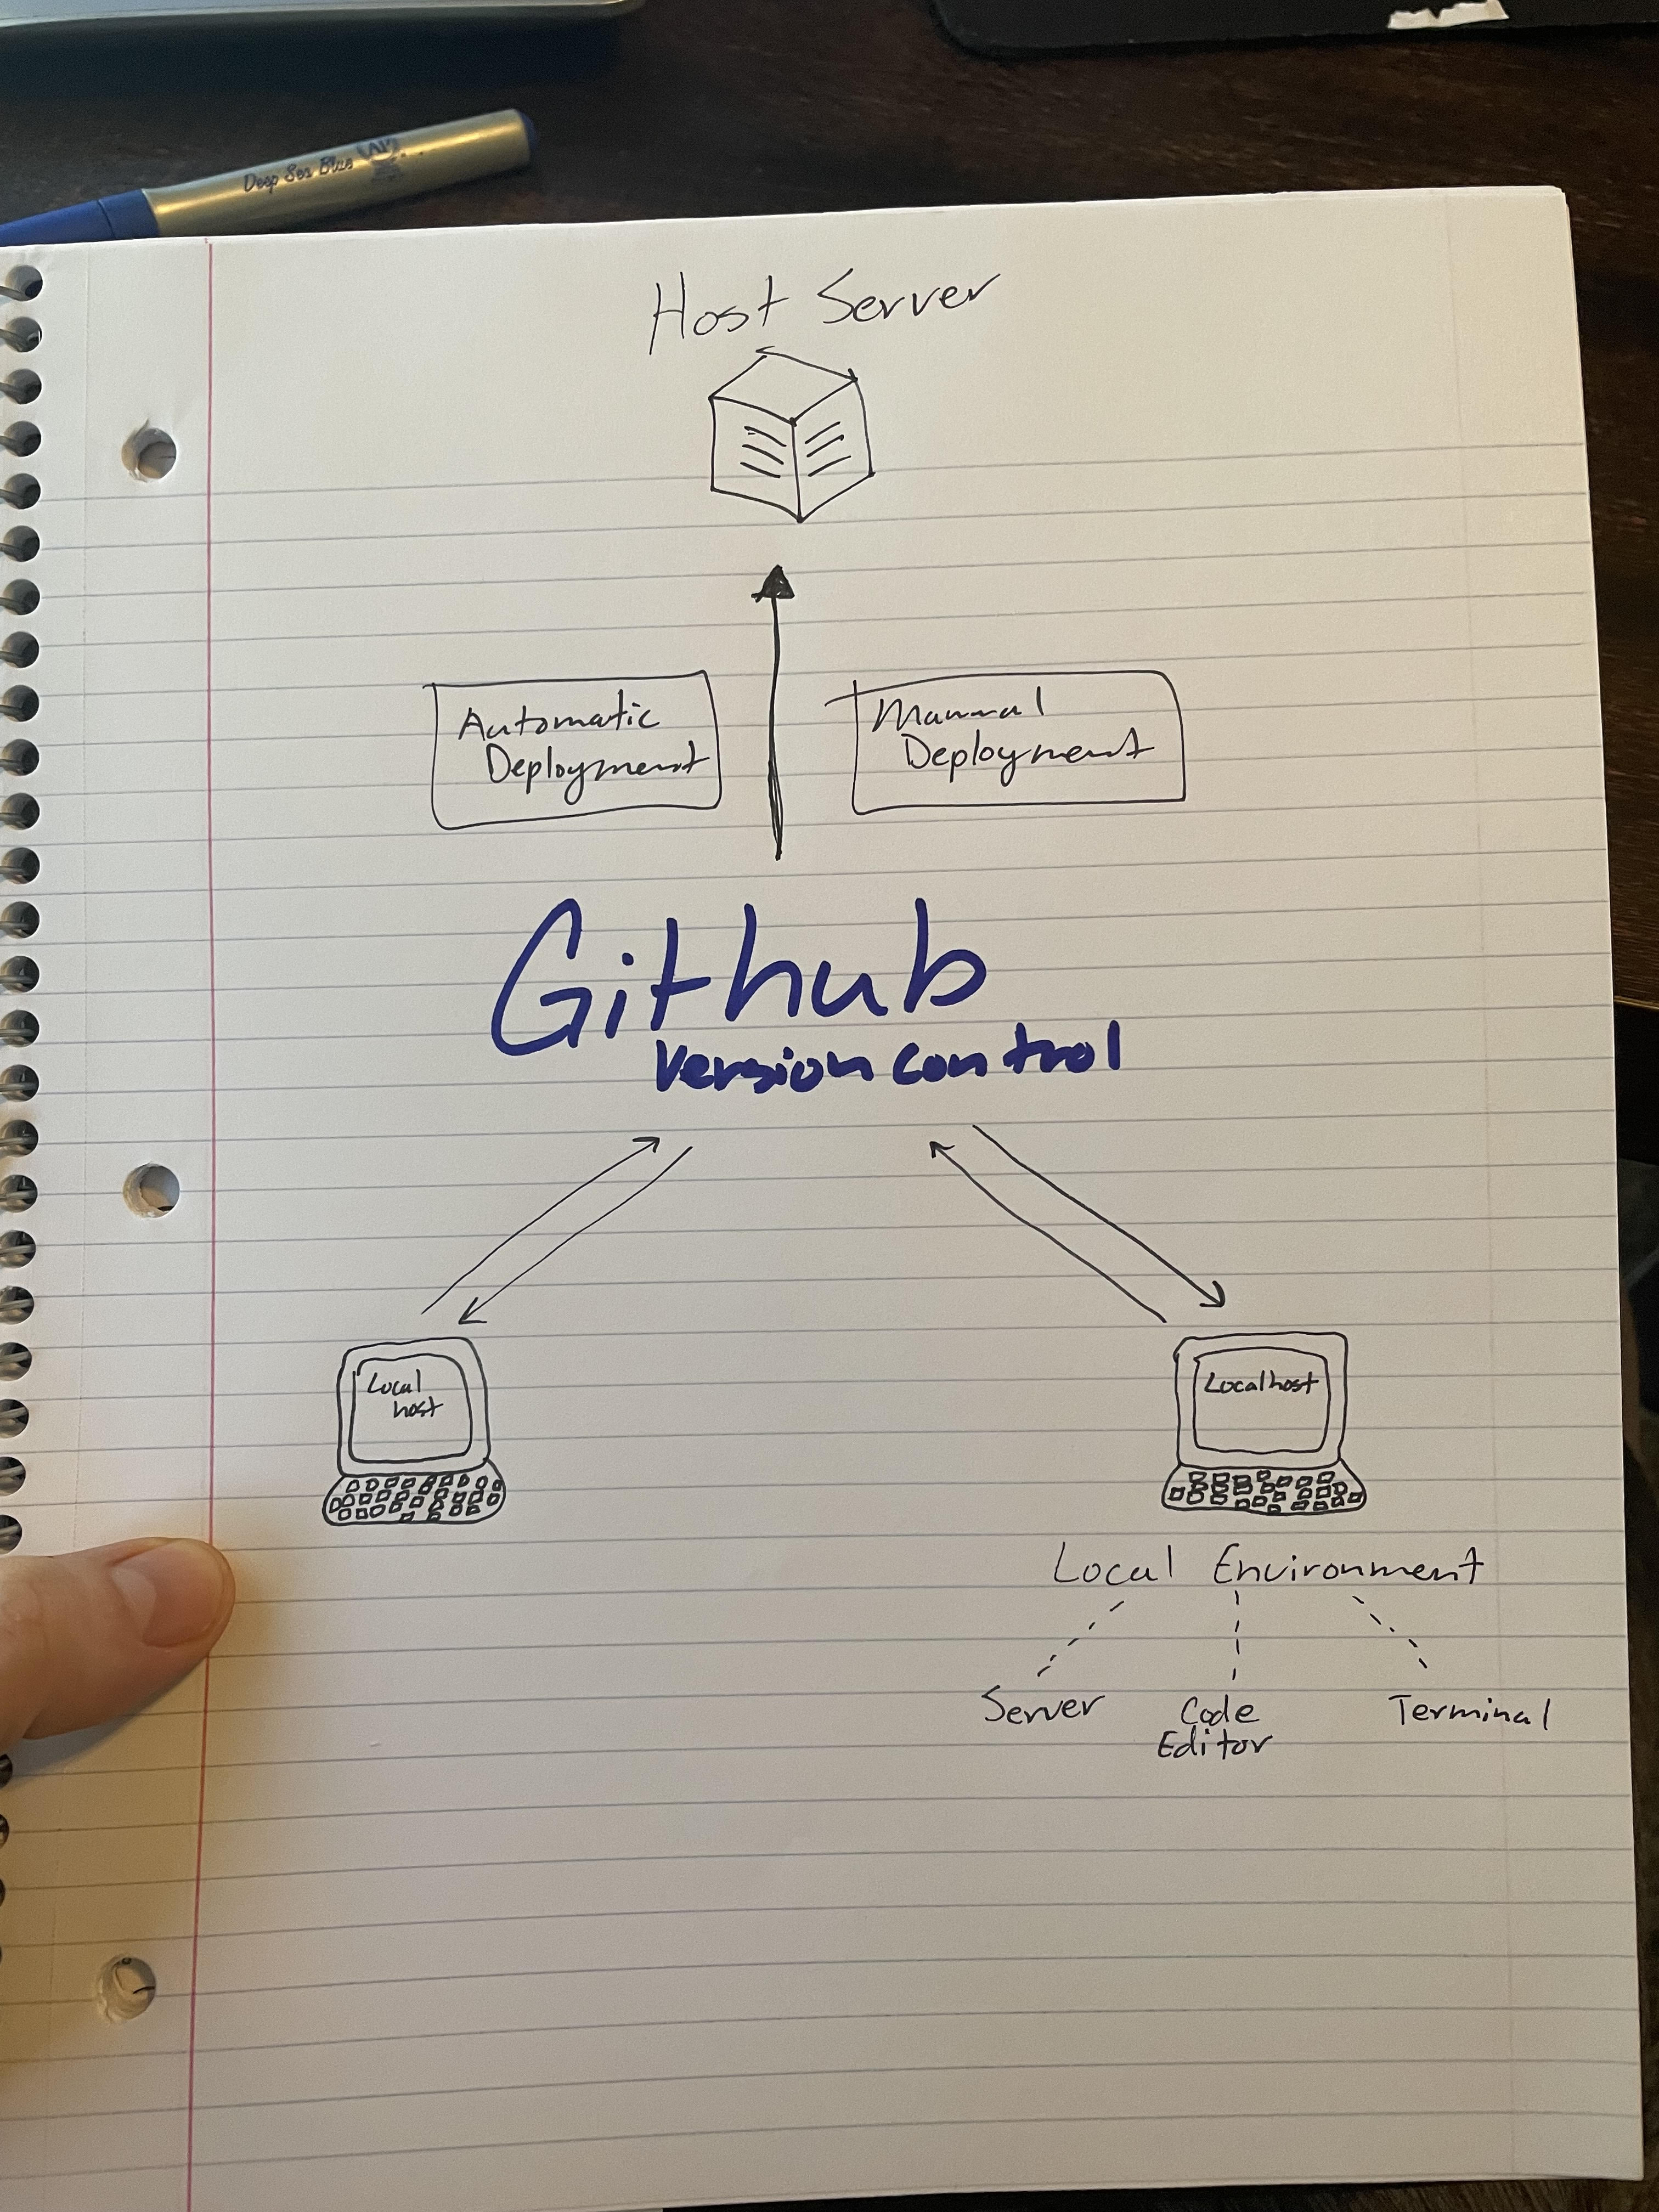 Deep Sea Blue
Host Server
Automatic
Deployment
Manual
Deployment
Github
Version control
Local
host
Localhost
Local Environment
Server
Code
Editor
Terminal